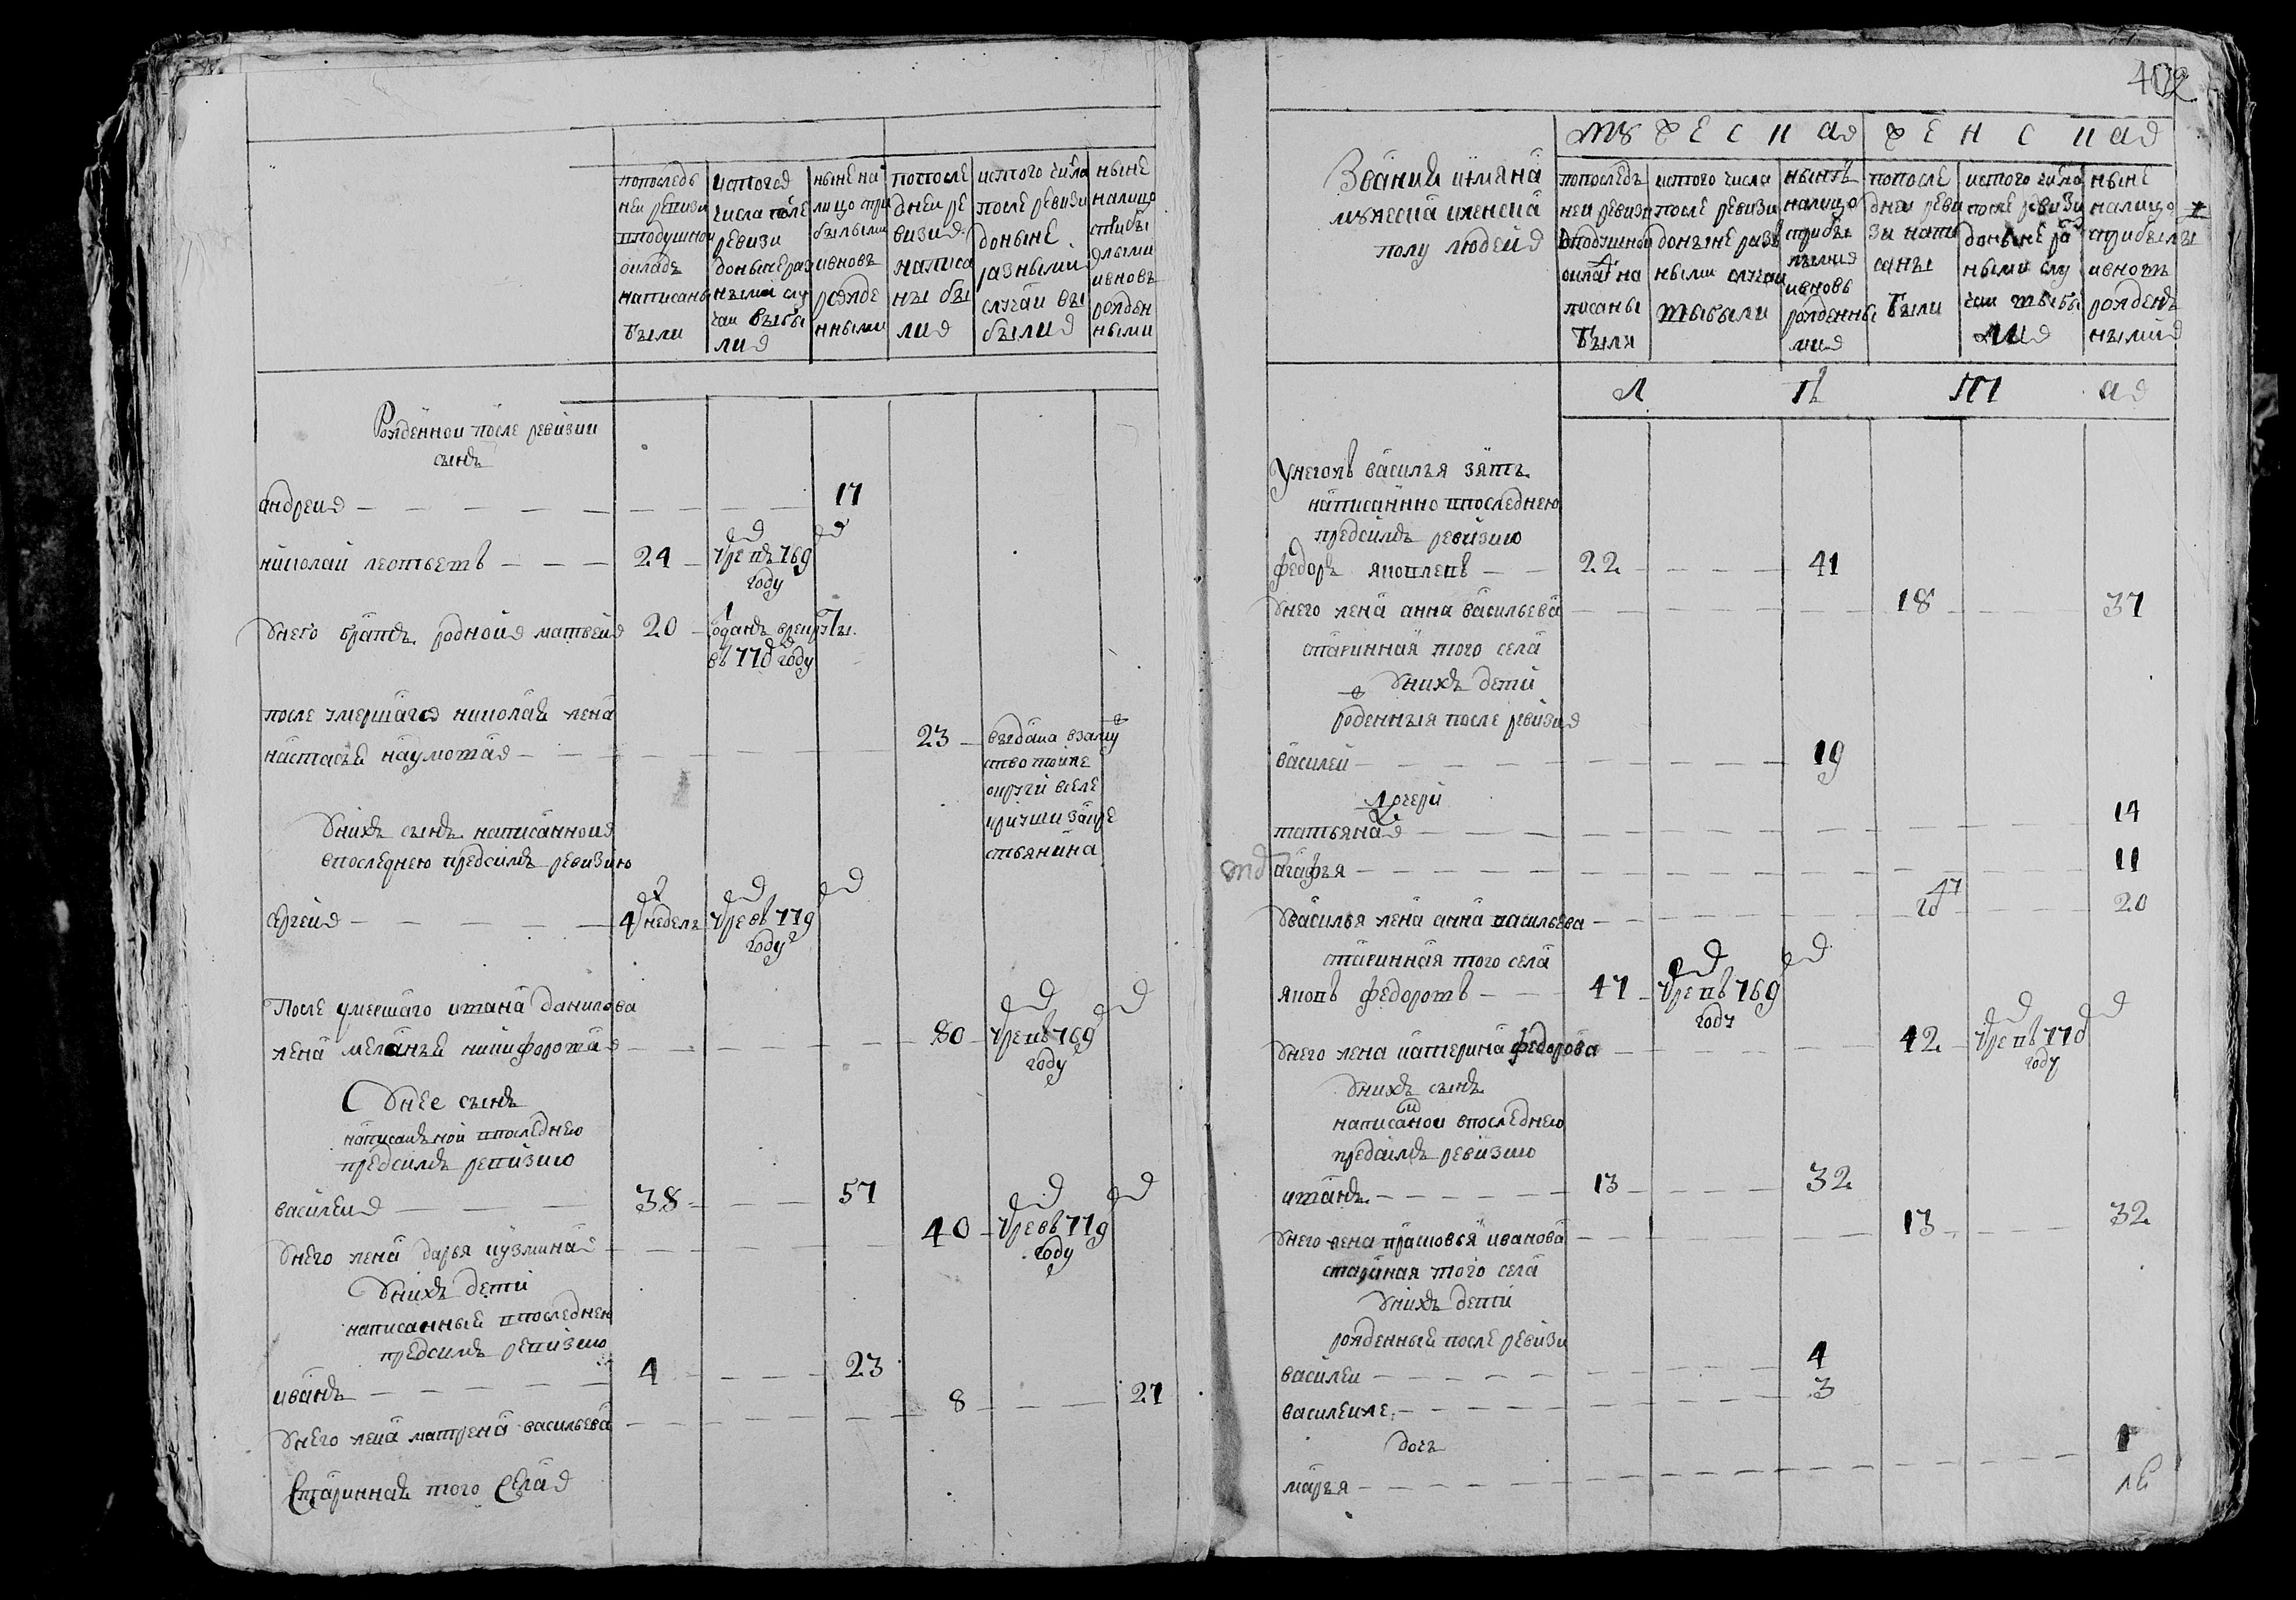 попоследъ
неи ревизи
вподушнои
окладъ
написаны
были
истогоя
числа после
ревизи
доныне раз
ными слу
чаи выбы
ли
ныне на
лицо при
былыми
ивновь
рожде
нными
попосле
дней ре
визия
написа
ны бы
ли
истого числа
после ревизи
доныне
разными
случаи вы
были
ныне
налицо
сприбы
лыми
ивновь
рожден
ными
Рожденнои после ревизии
сынъ
андреи 17
николаи леонтьевъ 24 умре въ 769
году
Унего братъ роднои матвеи 20 отданъ врекруты
въ 770 году
после умершаго николая жена
настасья наумова 23 выдана взаму
ство тойже
округи вселе
за кре
стьянина
Унихъ сынъ написаннои
впоследнею предсимъ ревизию
сергеи 4 недель умре въ 779
году
После умершаго ивана данилова
жена меланья никифорова 80 умре въ 769
году
Унее сынъ
написаннои впоследнею
предсимъ ревизию
василеи 38 57
Унего жена дарья кузмина 40 умре въ 779
году
Унихъ дети
написанныя впоследнею
предсимъ ревизию
иванъ 4 23
Унего жена матрена васильева 8 27
Старинная того села
402
мужеска женская
Звании имяна
мужеска иженска
полу людей
попоследъ
неи ревизи
вподушнои
окладъ на
писаны
были
истого числа
после ревизи
доныне раз
ными случаи
выбыли
ныне
налицо
сприбы
лыми
ивновь
рожденны
ми
попосле
днеи реви
зи напи
саны
были
истого числа
после ревизи
доныне ра
ными слу
чаи выбы
ли
ныне
налицо
сприбылы
ивновь
рожден
ными
л ѣ т а
Унегожъ василья зять
написанно впоследнею
предсимъ ревизию
федоръ яковлевъ 22 41
Унего жена анна васильева 18 37
старинная того села
Унихъ дети
рожденныя после ревизия
василеи 19
дочери
татьяна 14
агафья 11
Увасилья жена анна васильева 20
старинная того села
яковъ федоровъ 47 умре въ 769
году
Унего жена катерина федорова 42 умре въ 770
году
Унихъ сынъ
написанои впоследнею
предсимъ ревизию
иванъ 13 32
Унего жена прасковья иванова 13 32
стариная того села
Унихъ дети
рожденныя после ревизи
василеи 4
василеиже 3
дочь
марья 1